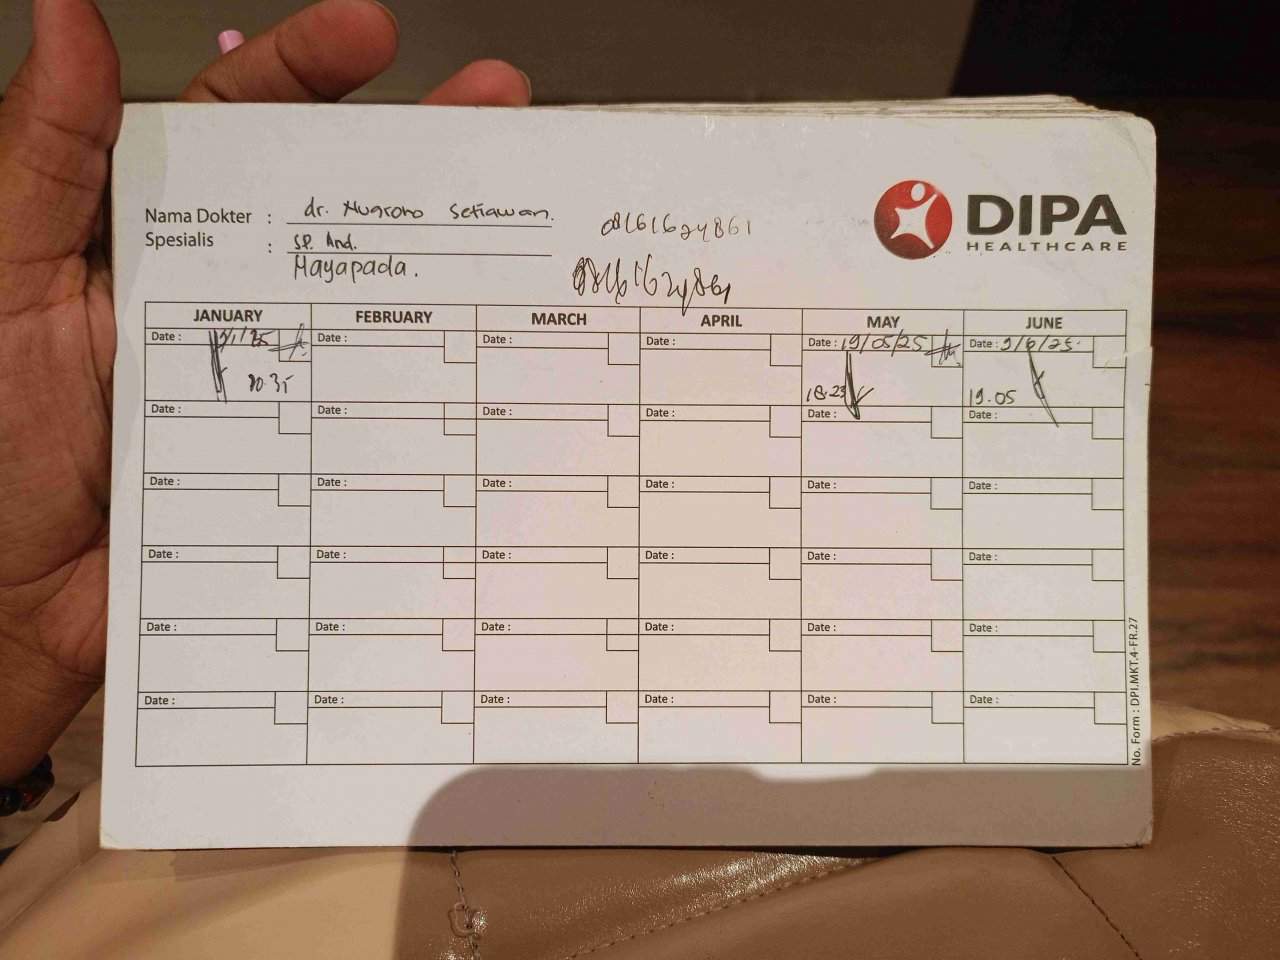 Nama Dokter : dr. Nugroho Setiawan.
Spesialis : Sp. And.
Mayapada.
08161624861
DIPA
HEALTHCARE
JANUARY FEBRUARY MARCH APRIL MAY JUNE
Date : Date : Date : Date : Date : 19/05/25 Date : 9/6/25
20.35 18.23 19.05
Date : Date : Date : Date : Date : Date :
Date : Date : Date : Date : Date : Date :
Date : Date : Date : Date : Date : Date :
Date : Date : Date : Date : Date : Date :
Date : Date : Date : Date : Date : Date :
No. Form : DPI.MKT.4-FR.27